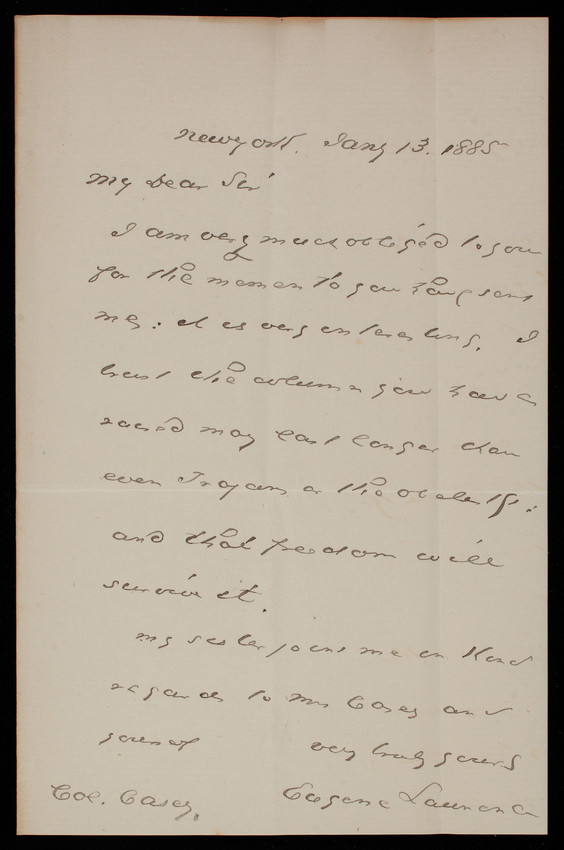 New york. Jany 13. 1885
My Dear Sir
I am very much obliged to you
for the memento you have sent
me: it is very interesting. I
trust the column you have
raised may last longer than
even Trajans or the obelisk:
and that freedom will
survive it.
My sister joins me in kind
regards to Mrs Casey and
yourself very truly yours
Col. Casey. Eugene Lawrence